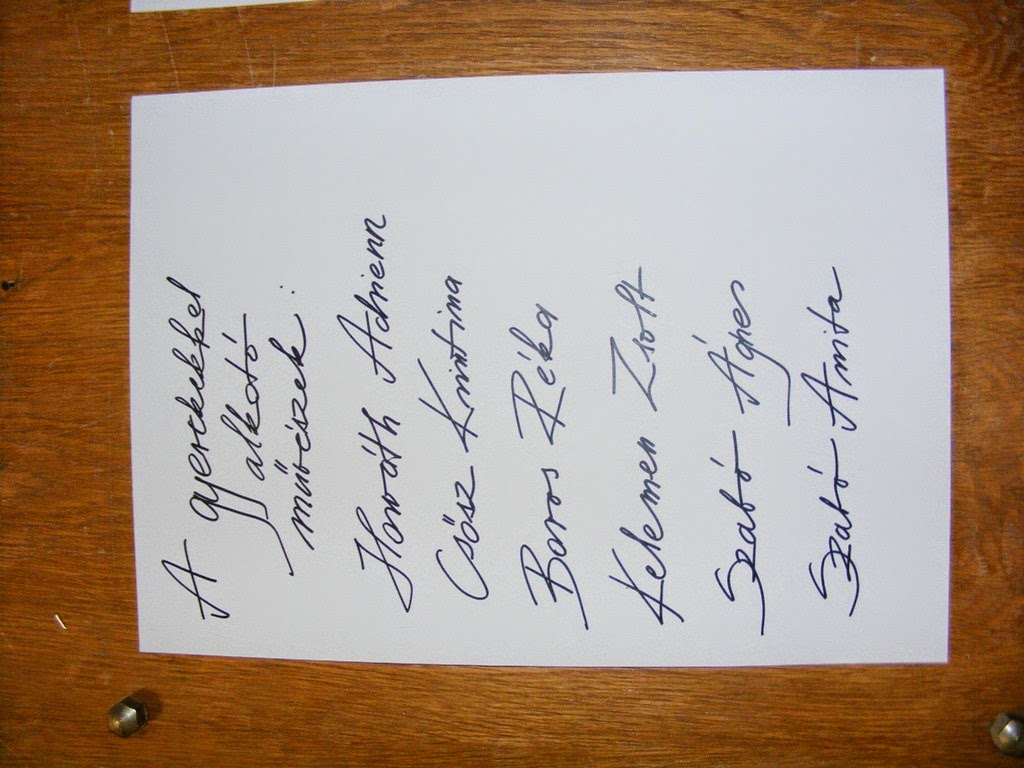 A gyerekekkel
alkotó
művészek:
Horváth Adrienn
Csősz Krisztina
Boros Réka
Kelemen Zsolt
Szabó Ágnes
Szabó Anita